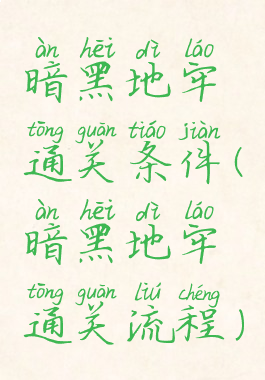 àn hēi dì láo
暗黑地牢
tōng guān tiáo jiàn
通关条件(
àn hēi dì láo
暗黑地牢
tōng guān liú chéng
通关流程)